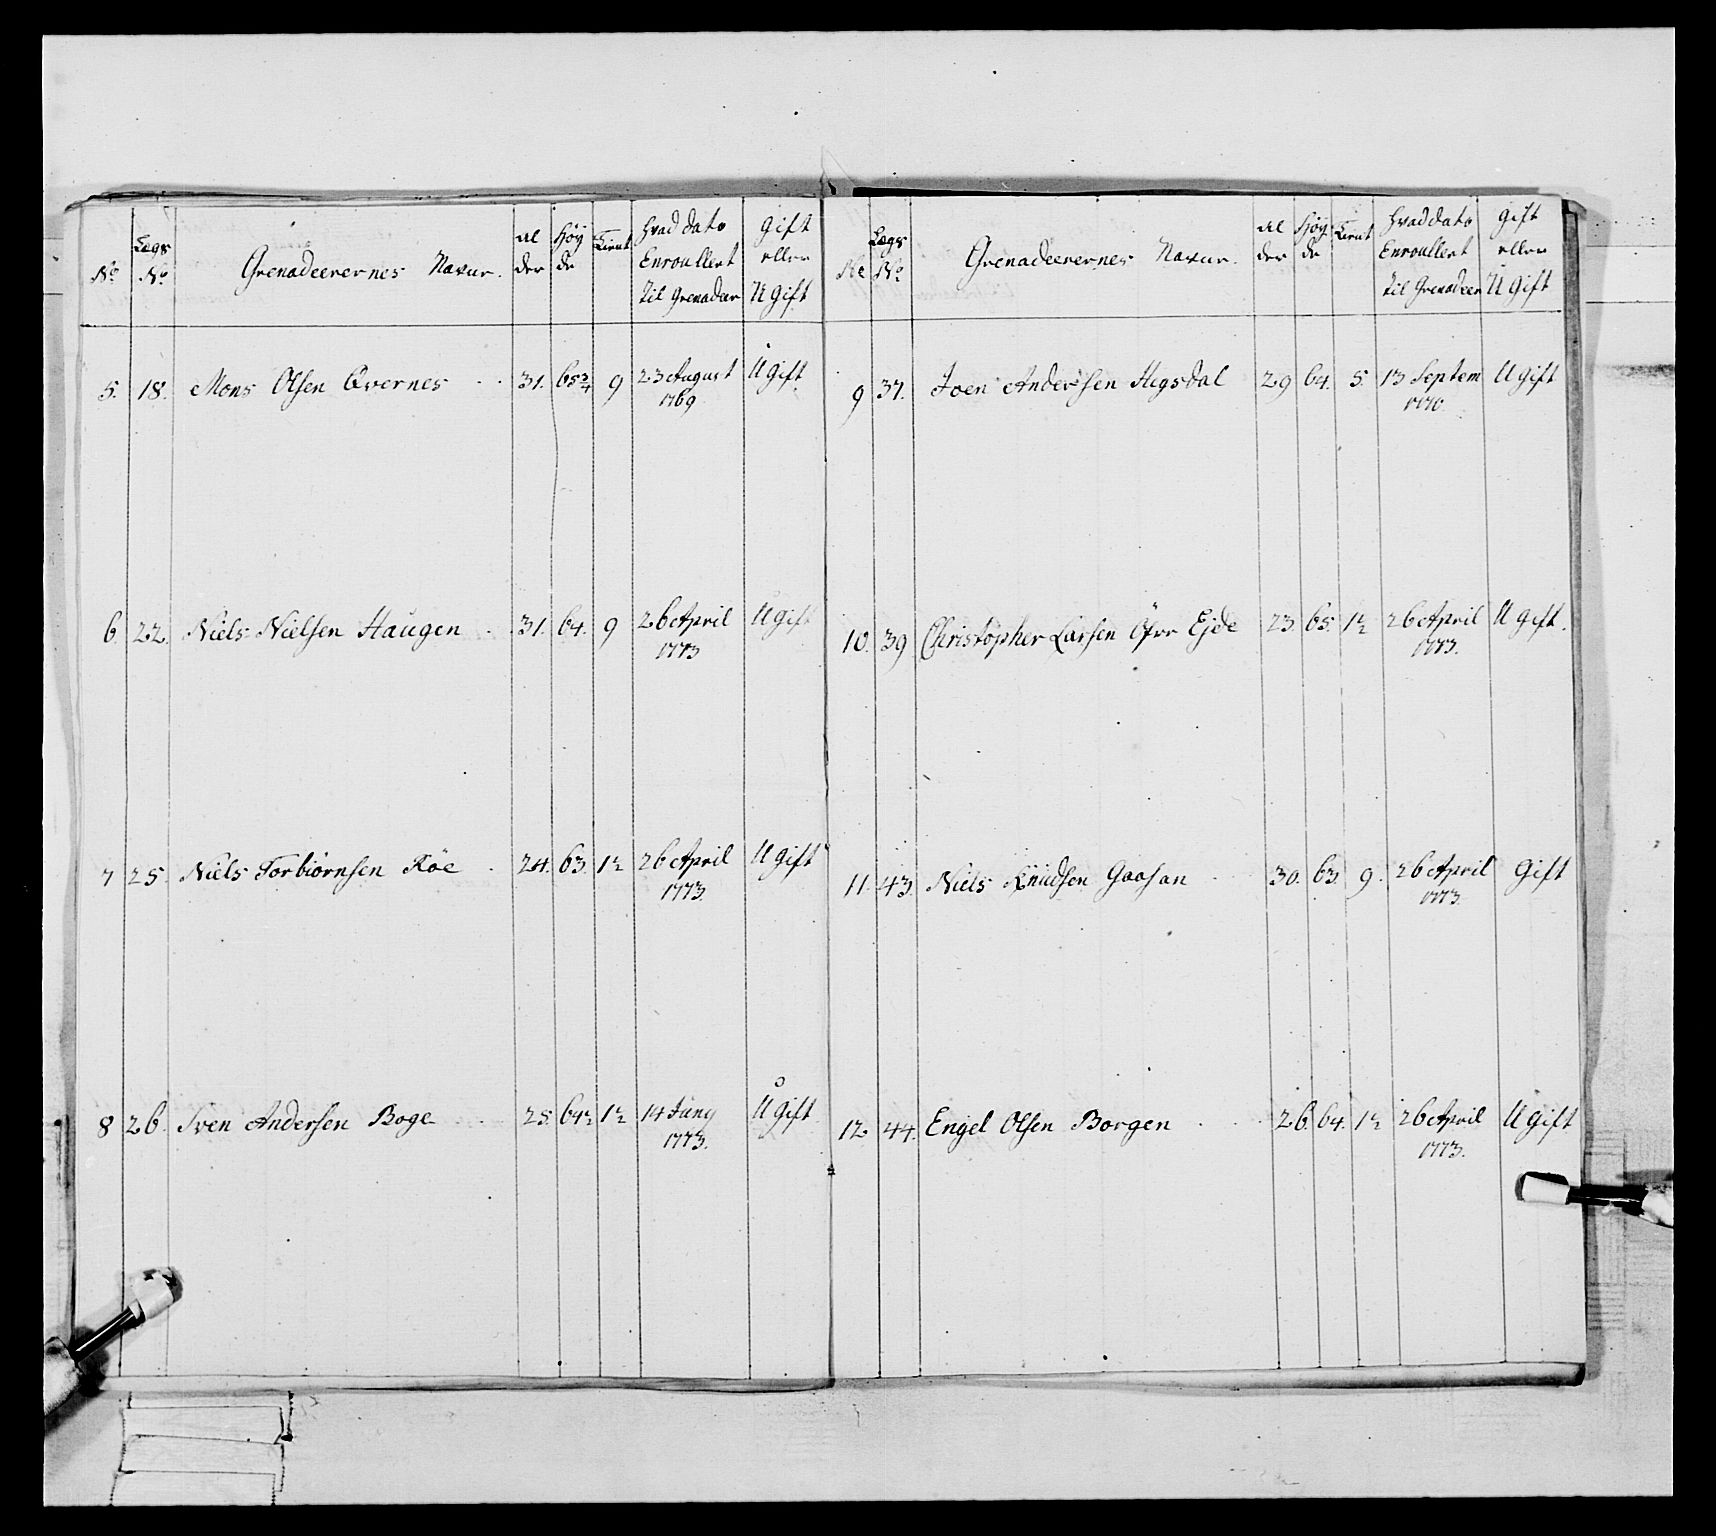 No
Lægs No
Grenadeerernes Navne.
Al der
Høy de
Tient
Hvad dato Enroullert til Grenadeer
Gift eller Ugift
5. 18. Mons Olsen Qvernes 31. 65 3/4 9 23 August Ugift
1769
6. 22. Niels Nielsen Haugen 31. 64. 9 26 April Ugift
1773
7 25. Niels Torbiørnsen Røe 24. 63. 1½ 26 April Ugift
1773.
8 26. Sven Andersen Boge 25. 64½ 1½ 14 Juny Ugift
1773.
No
Lægs No
Grenadeerernes Navne.
Al der
Høy de
Tient
Hvad dato Enroullert til Grenadeer
Gift eller Ugift
9 37. Joen Andersen Hegsdal 29 64. 5. 13 Septem Ugift
1770.
10. 39 Christopher Larsen Öfre Ejde 23. 65. 1½ 26 April Ugift.
1773.
11. 43. Niels Knudsen Gaasan 30. 63. 9. 26 April Gift
1773.
12 44. Engel Olsen Borgen 26. 64. 1½ 26 April Ugift
1773.